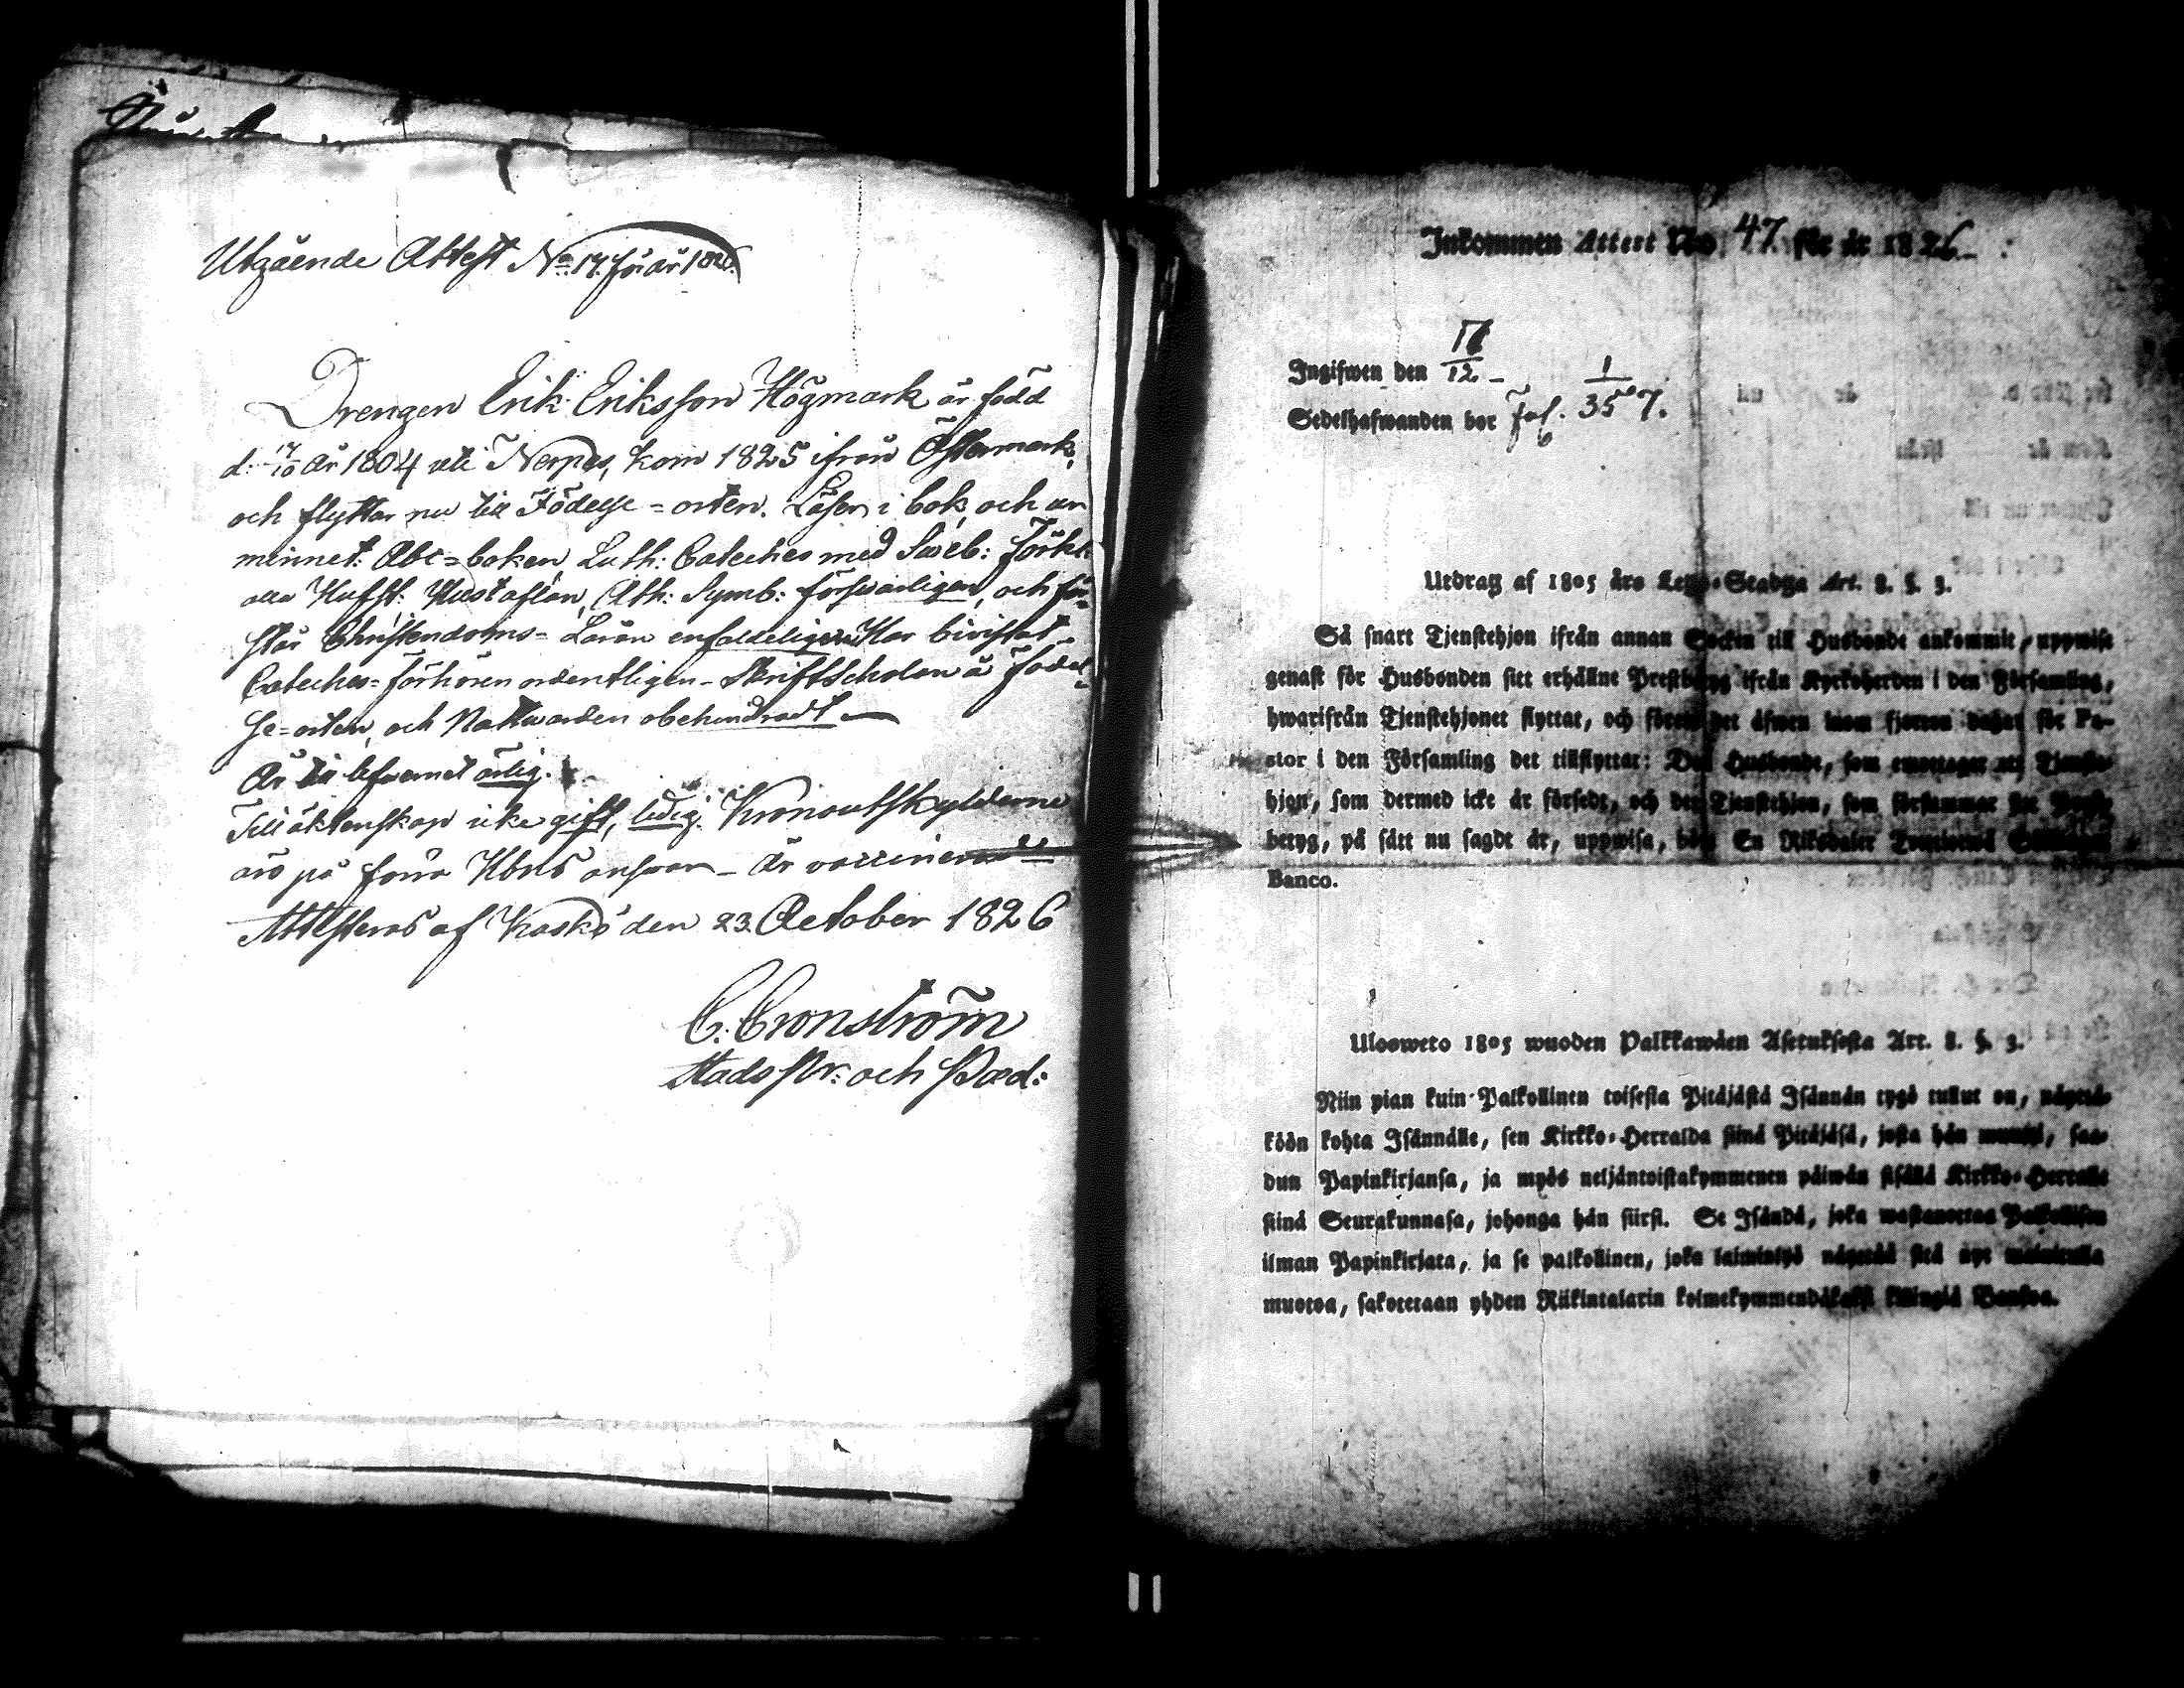 Utgående Attest No 17. för år 1826.
Drengen Erik Eriksson Högmark är född
d: 17/10 år 1804 uti Nerpes, kom 1825 ifrån Östermark,
och flyttar nu till Födelse=orten. Läser i bok och ur
minnet: Abc=boken, Luth: Cateches med Sveb: Förkl:
alla Hufst: Hustaflan, Ath: Symb: försvarligen, och för-
står Christendoms=Läran enfaldeligen. Har bivistat
Cateches=förhören ordentligen – Skriftscholan å Födel-
se=orten, och Nattvarden obehindradt. —
Är till lefvernet ärlig.
Till äktenskap icke gift, ledig. Kronoutskylderne
äro på förra Hbns ansvar – Är vaccinerad
Attesteras af Kaskö den 23. October 1826
C. Cronström
Stads Pr: och Pæd:
Inkommen Attest No. 47. för år 1826.
Ingifwen den 17/12 –
Sedelhafwanden bor Fol. 1/357.
Utdrag af 1805 års Lego-Stadga Art. 8. §. 3.
Så snart Tjenstehjon ifrån annan Socken till Husbonde ankommit, uppwise
genast för Husbonden sitt erhållne Prestbetyg ifrån Kyrkoherden i den Församling,
hwarifrån Tjenstehjonet flyttat, och förete det äfwen inom fjorton dagar för Pa-
stor i den Församling det tillflyttar: Den Husbonde, som emottager ett Tjenste-
hjon, som dermed icke är försedt, och det Tjenstehjon, som försummar sitt Prest-
betyg, på sätt nu sagdt är, uppwisa, böte En Riksdaler Trettiotwå Skillingar
Banco.
Ulosweto 1805 wuoden Palkkawäen Asetuksesta Art. 8. §. 3.
Niin pian kuin Palkollinen toisesta Pitäjästä Isännän tygö tullut on, näyttä-
köön kohta Isännälle, sen Kirkko-Herralda siinä Pitäjäsä, josta hän muutti, saa-
dun Papinkirjansa, ja myös neljäntoistakymmenen päiwän sisällä Kirkko-Herralle
siinä Seurakunnasa, johonga hän siirsi. Se Isändä, joka wastanottaa Palkollisen
ilman Papinkirjata, ja se palkollinen, joka laiminlyö näyttää sitä nyt mainitulla
muotoa, sakotetaan yhden Riikintalarin kolmekymmendäkaksi killingiä Bankoa.